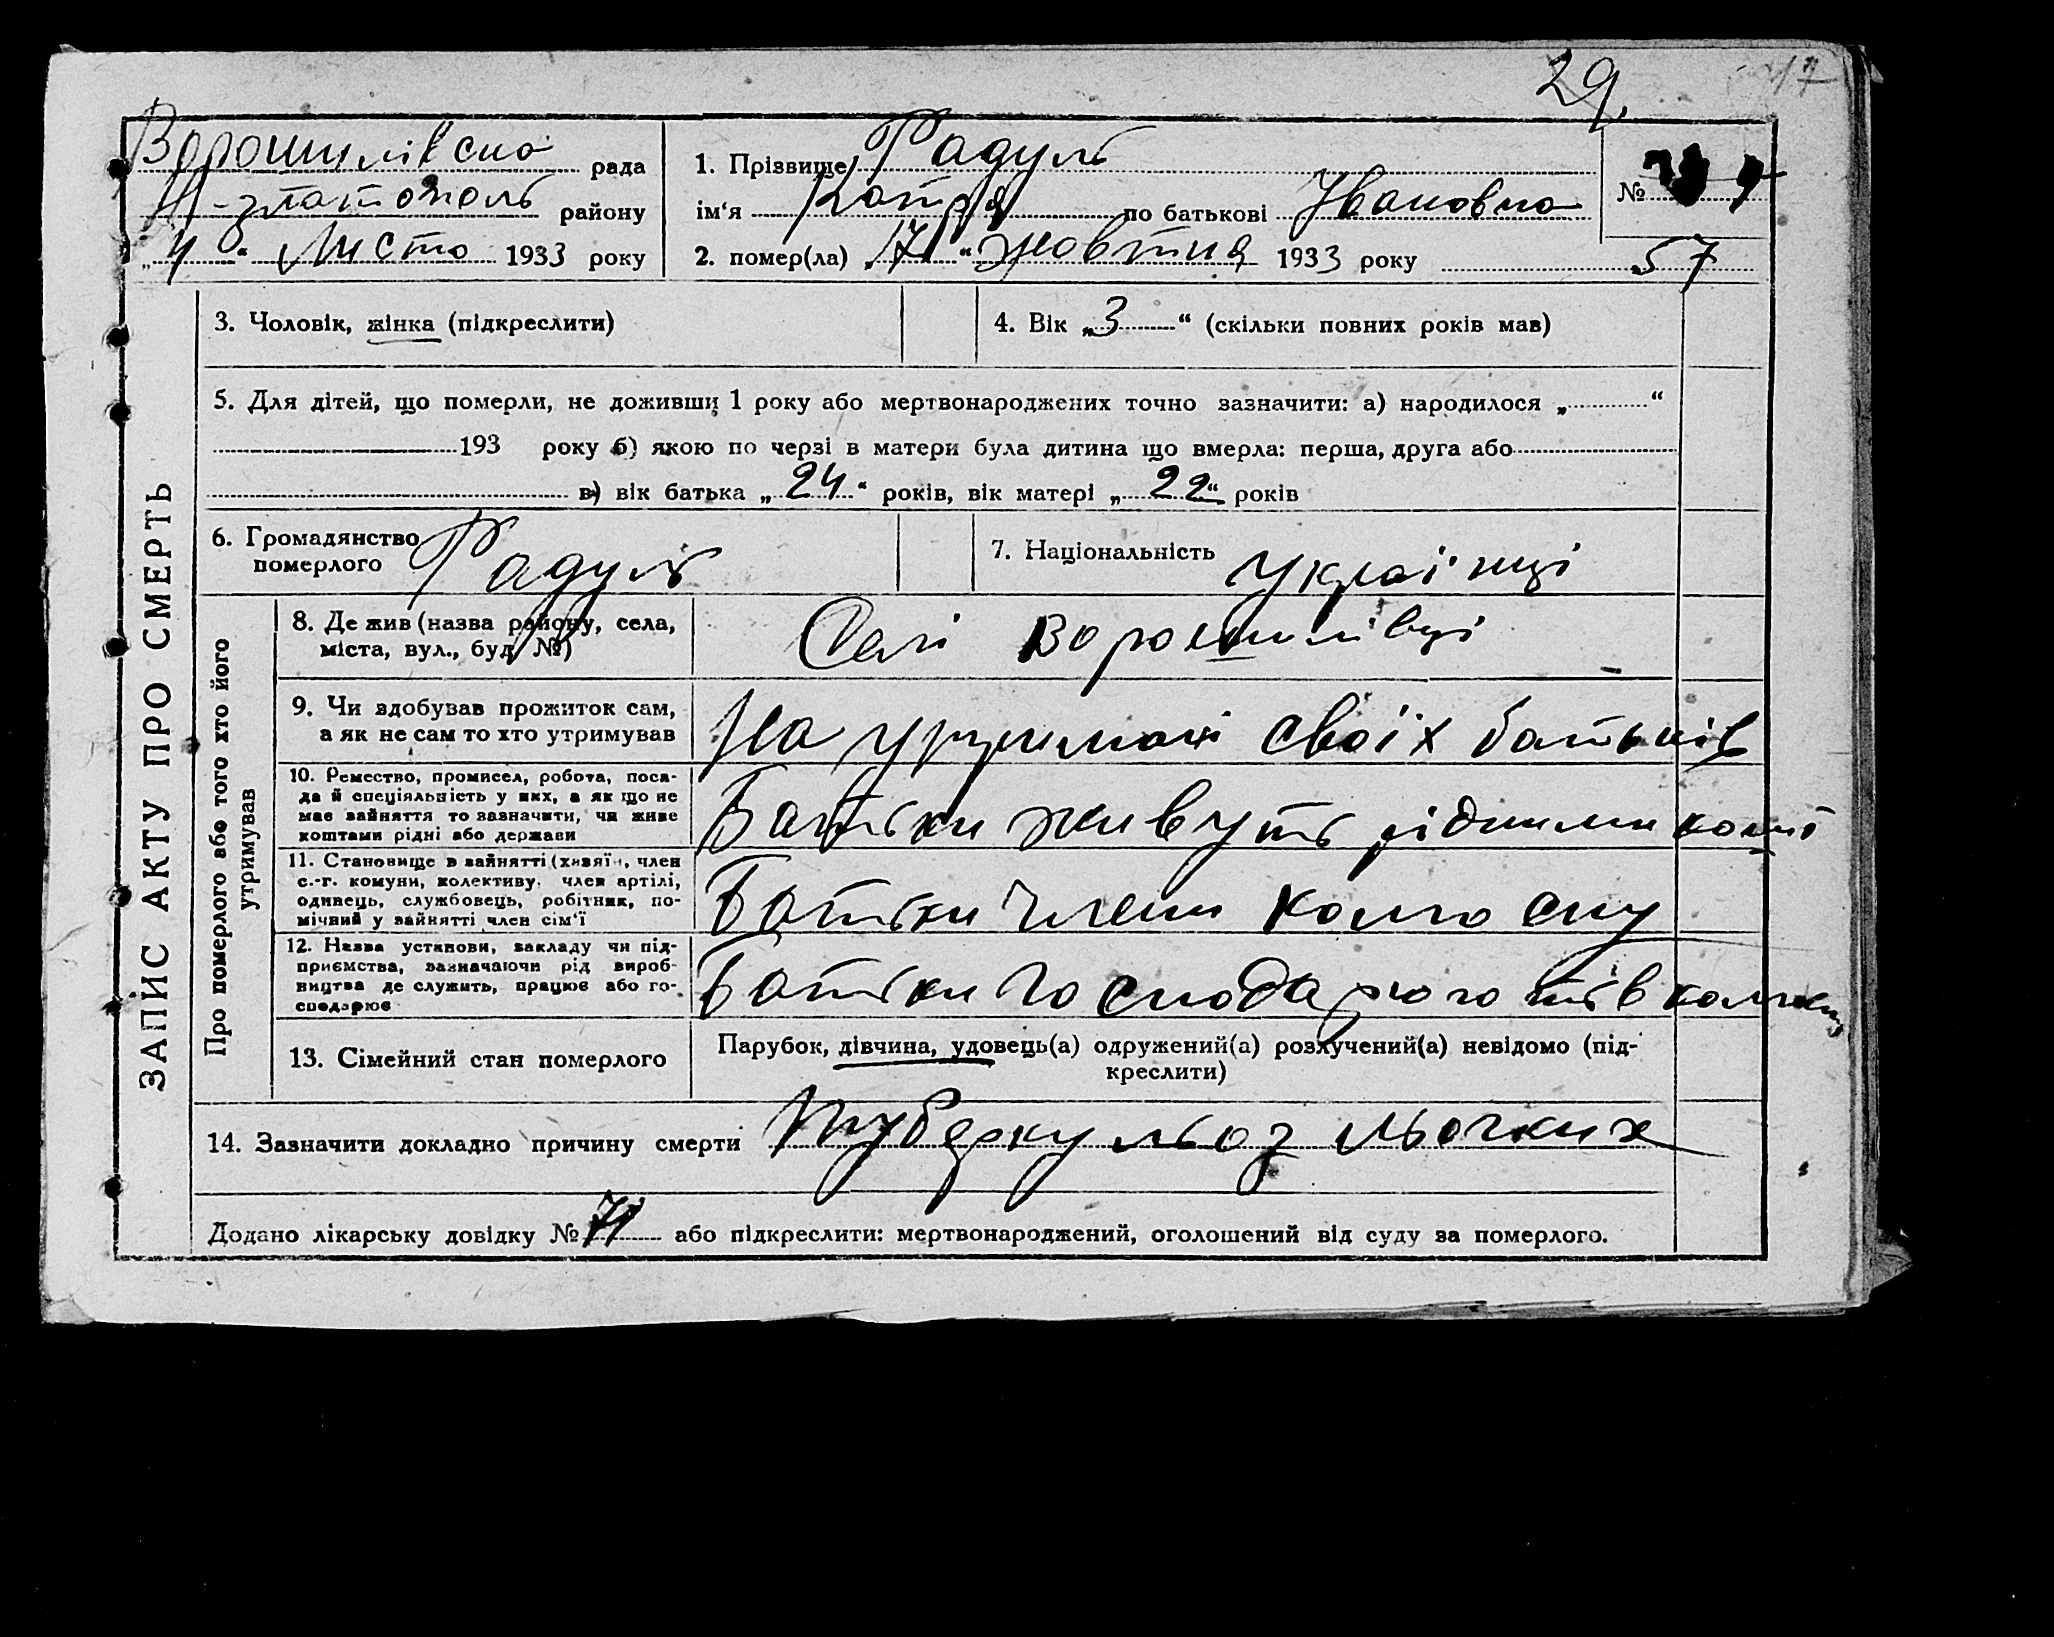 29.
Ворошилівська рада
Н-златопіль району
„4“ Листо 1933 року
1. Прізвище Радуль
ім‘я Катря по батькові Івановна
2. помер(ла) „17“ жовтня 1933 року
№
57
ЗАПИС АКТУ ПРО СМЕРТЬ
3. Чоловік, жінка (підкреслити)
4. Вік „3“ (скільки повних років мав)
5. Для дітей, що померли, не доживши 1 року або мертвонароджених точно зазначити: а) народилося „ “
193 року б) якою по черзі в матери була дитина що вмерла: перша, друга або
в) вік батька „24“ років, вік матері „22“ років
6. Громадянство
померлого Радуль
7. Національність Українці
Про померлого або того хто його
утримував
8. Де жив (назва району, села,
міста, вул., буд. №)
Селі Ворошилівці
9. Чи здобував прожиток сам,
а як не сам то хто утримував
На утримані своїх батьків
10. Ремество, промисел, робота, поса-
да й спеціяльність у них, а як що не
має зайняття то зазначити, чи живе
коштами рідні або держави
Батьки живуть рідними кошт
11. Становище в зайнятті (хазяїн, член
с.-г. комуни, колективу, член артілі,
одинець, службовець, робітник, по-
мічний у зайнятті член сім‘ї
Батьки члени колгоспу
12. Назва установи, закладу чи під-
приємства, зазначаючи рід вироб-
ництва де служить, працює або го-
сподарює
Батьки господарюють в колгоспу
13. Сімейний стан померлого
Парубок, дівчина, удовець(а) одружений(а) розлучений(а) невідомо (під-
креслити)
14. Зазначити докладно причину смерти туберкульоз льогких
Додано лікарську довідку № 71 або підкреслити: мертвонароджений, оголошений від суду за померлого.